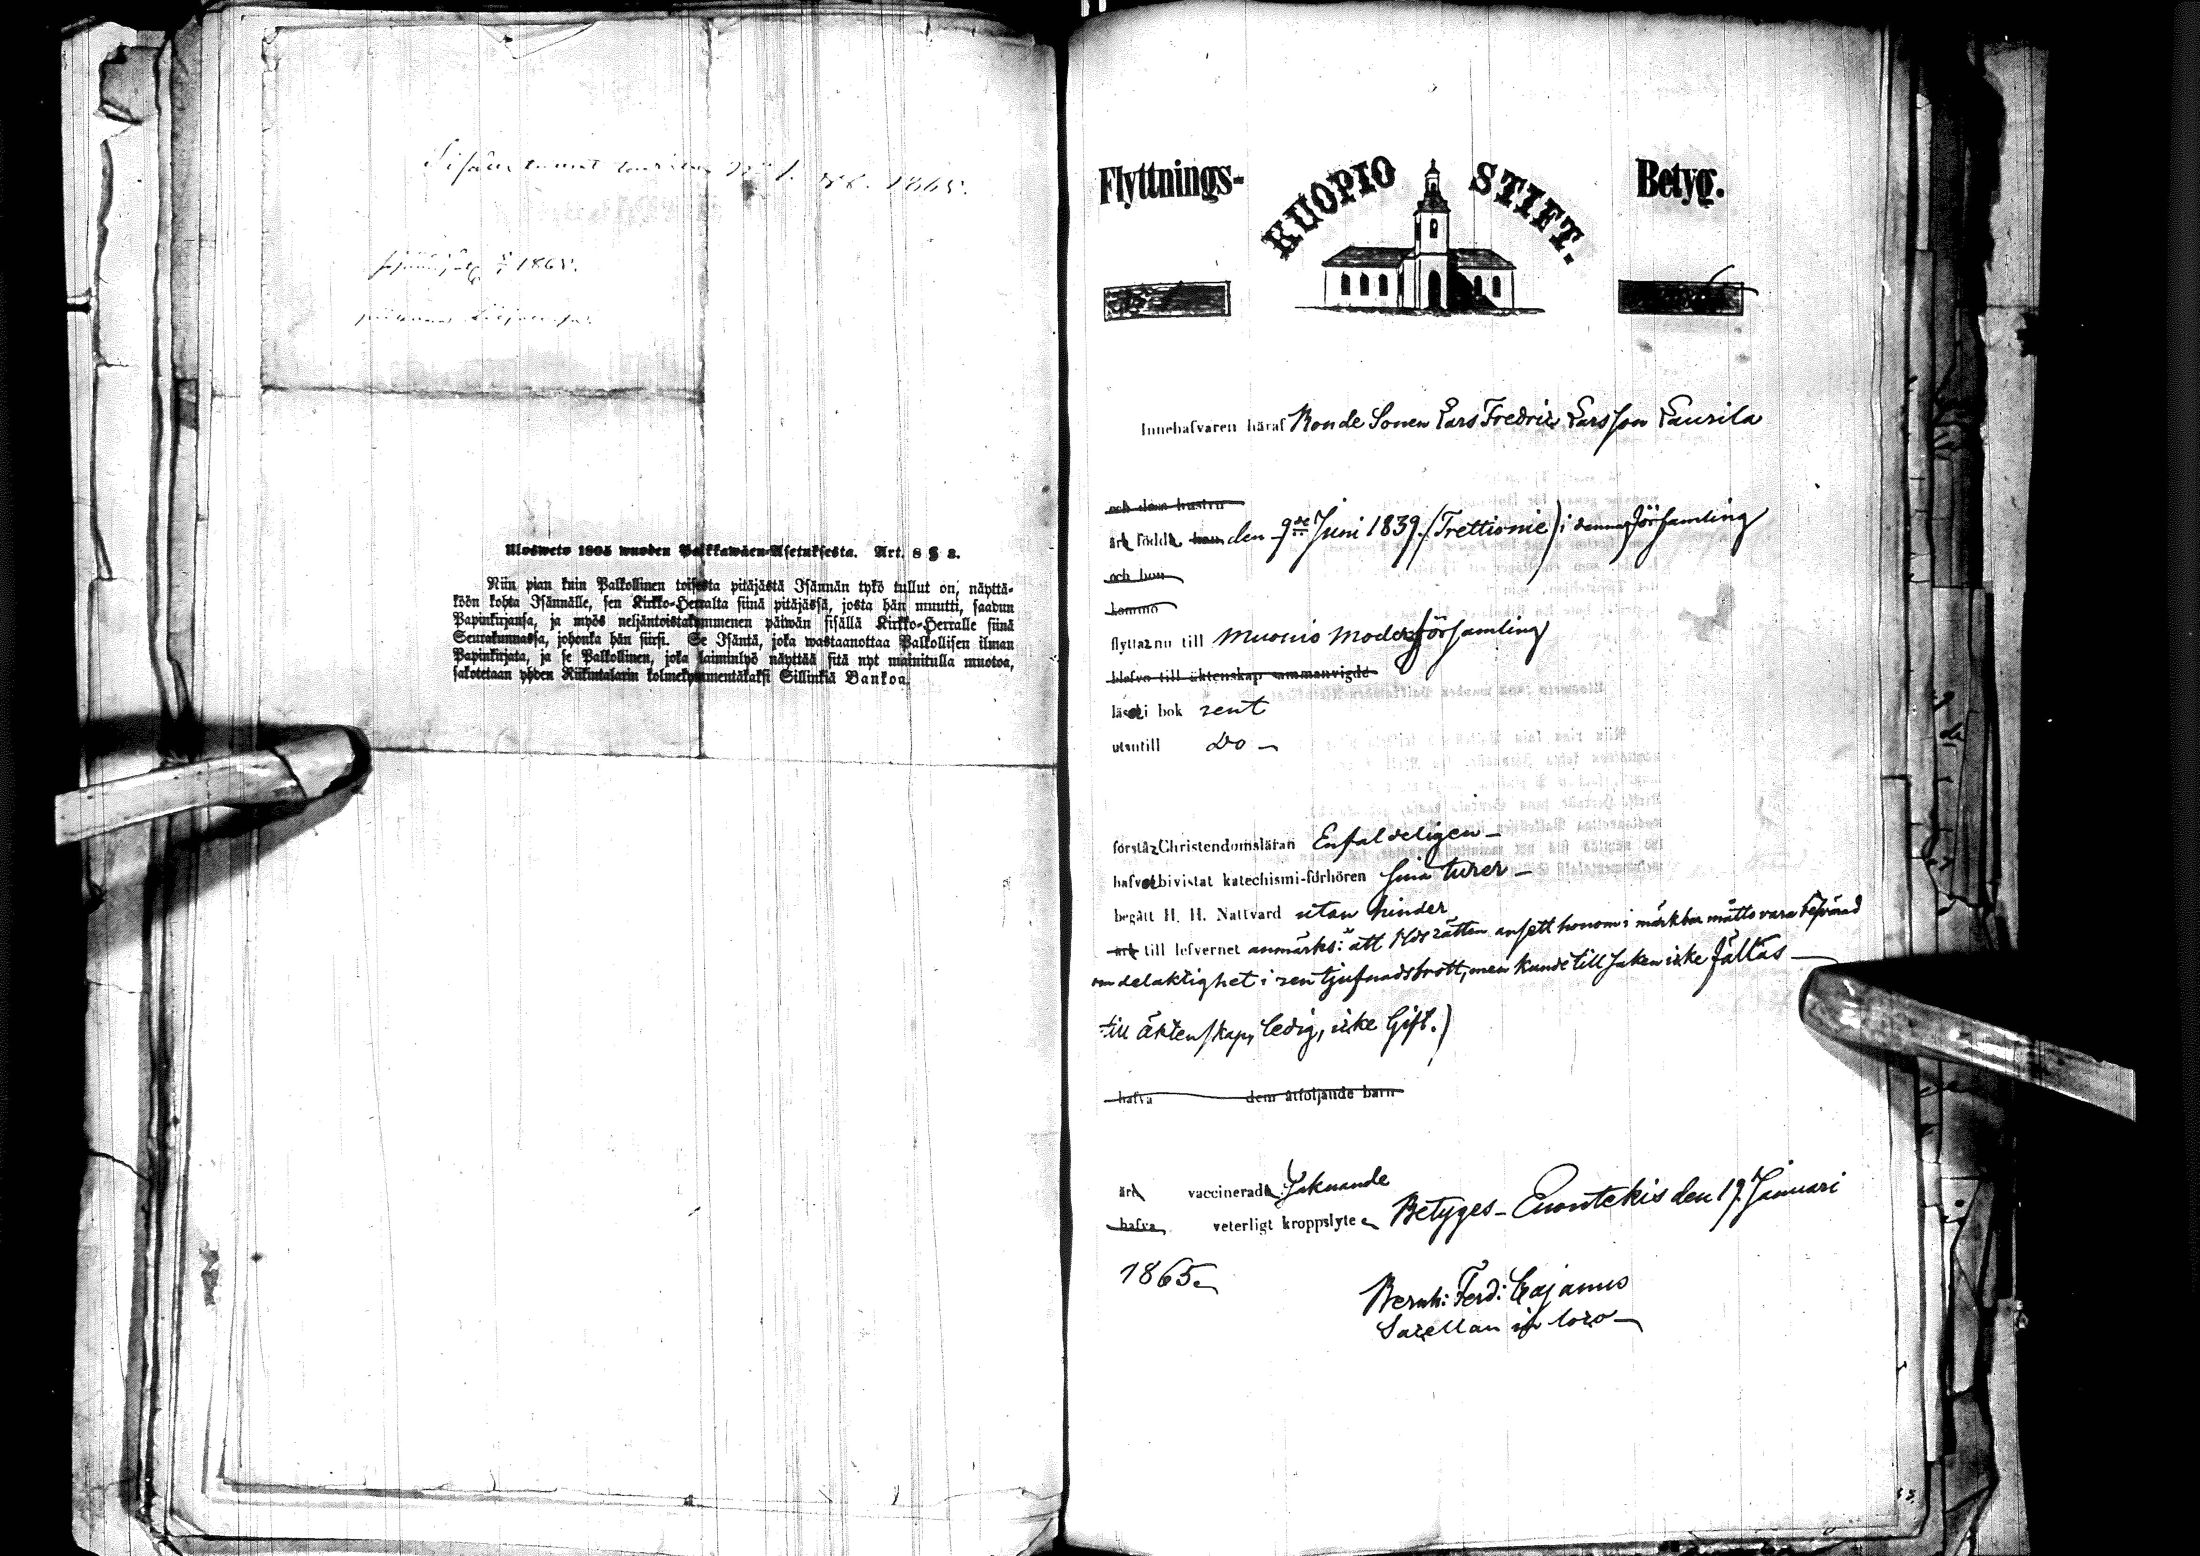 1865.
1865.
Ulosweto 1805 wuoden Palkkawäen-Asetuksesta. Art. 8 § 8.
Niin pian kuin Palkollinen toisesta pitäjästä Isännän tykö tullut on, näyttä-
köön kohta Isännälle, sen Kirkko-Herralta siinä pitäjässä, josta hän muutti, saadun
Papinkirjansa, ja myös neljäntoistakymmenen päiwän sisällä Kirkko-Herralle siinä
Seurakunnassa, johonka hän siirsi. Se Isäntä, joka wastaanottaa Palkollisen ilman
Papinkirjata, ja se Palkollinen, joka laiminlyö näyttää sitä nyt mainitulla muotoa,
sakotetaan yhden Riikintalarin kolmekymmentäkaksi Sillinkiä Banko a.
Flyttnings- KUOPIO STIFT. Betyg.
Innehafvaren häraf Bonde Sonen Lars Fredric Larsson Laurila
och dess hustru
är född den 9de Juni 1839. (Trettionie) i denna församling
och hon
kommo
flyttar nu till Muonio Moderförsamling
blefvo till äktenskap sammanvigde
läser i bok rent
utantill Do –
förstår Christendomsläran Enfaldeligen –
hafver bivistat katechismi-förhören sina turer –
begått H. H. Nattvard utan hinder
är till lefvernet anmärks: att Hds rätten ansett honom i märkbar måtto vara besvärad
om delaktighet i ren tjufnadsbrott, men kunde till saken icke fällas –
till äktenskap, ledig, icke Gift.)
hafva dem åtföljande barn
är vaccinerad Saknande
hafva veterligt kroppslyte Betyges – Enontekis den 19 Januari
1865.
Bernh: Ferd: Cajanus
Sacellan in loco –